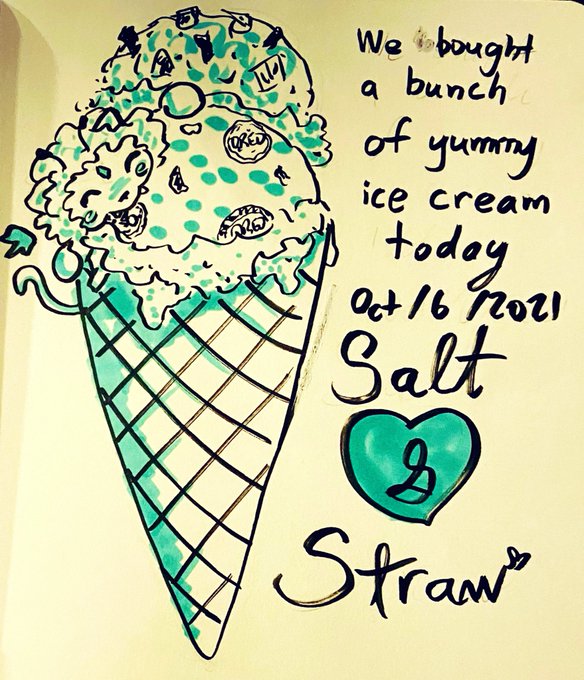 We bought
a bunch
of yummy
ice cream
today
Oct/6/2021
Salt
&
Straw
OREO
OREO